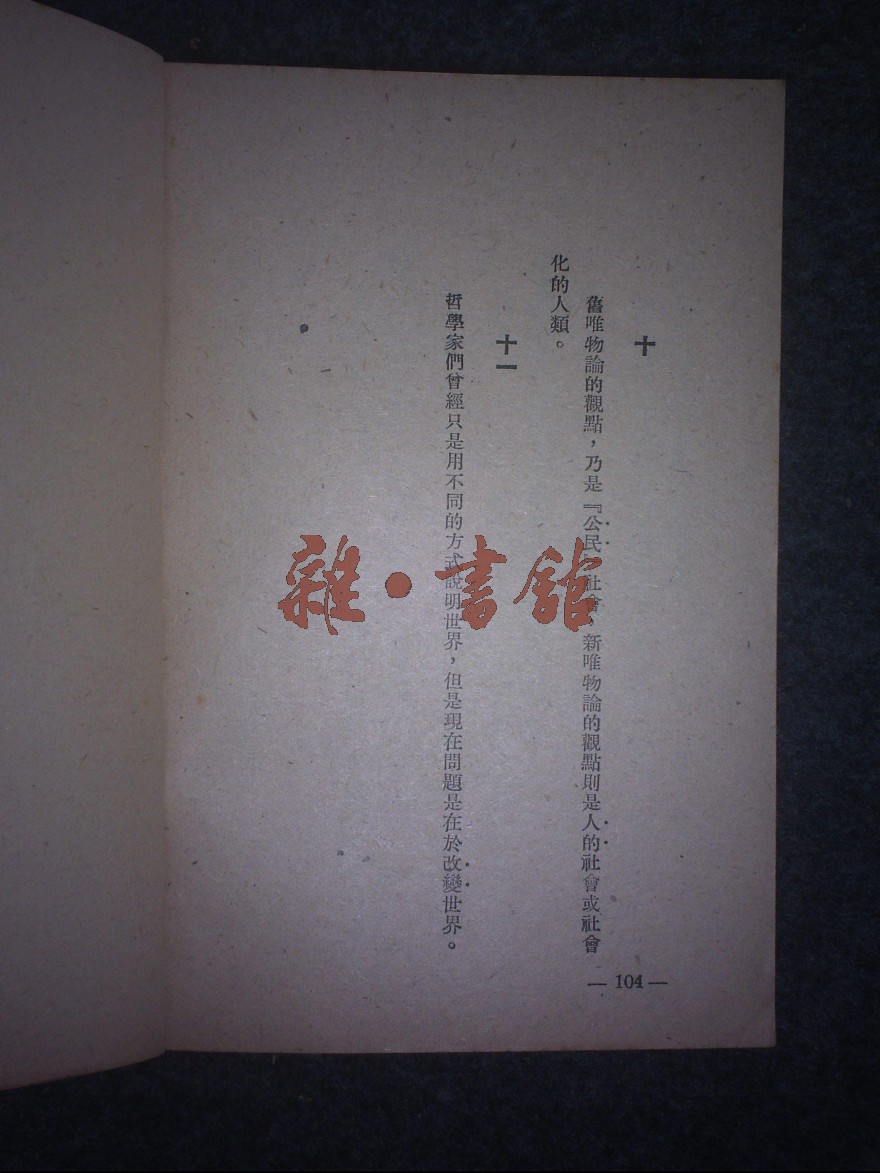 十
舊唯物論的觀點，乃是『公民』社會，新唯物論的觀點則是人的社會或社會
化的人類。
十一
哲學家們曾經只是用不同的方式說明世界，但是現在問題是在於改變世界。
— 104 —
雜·書館